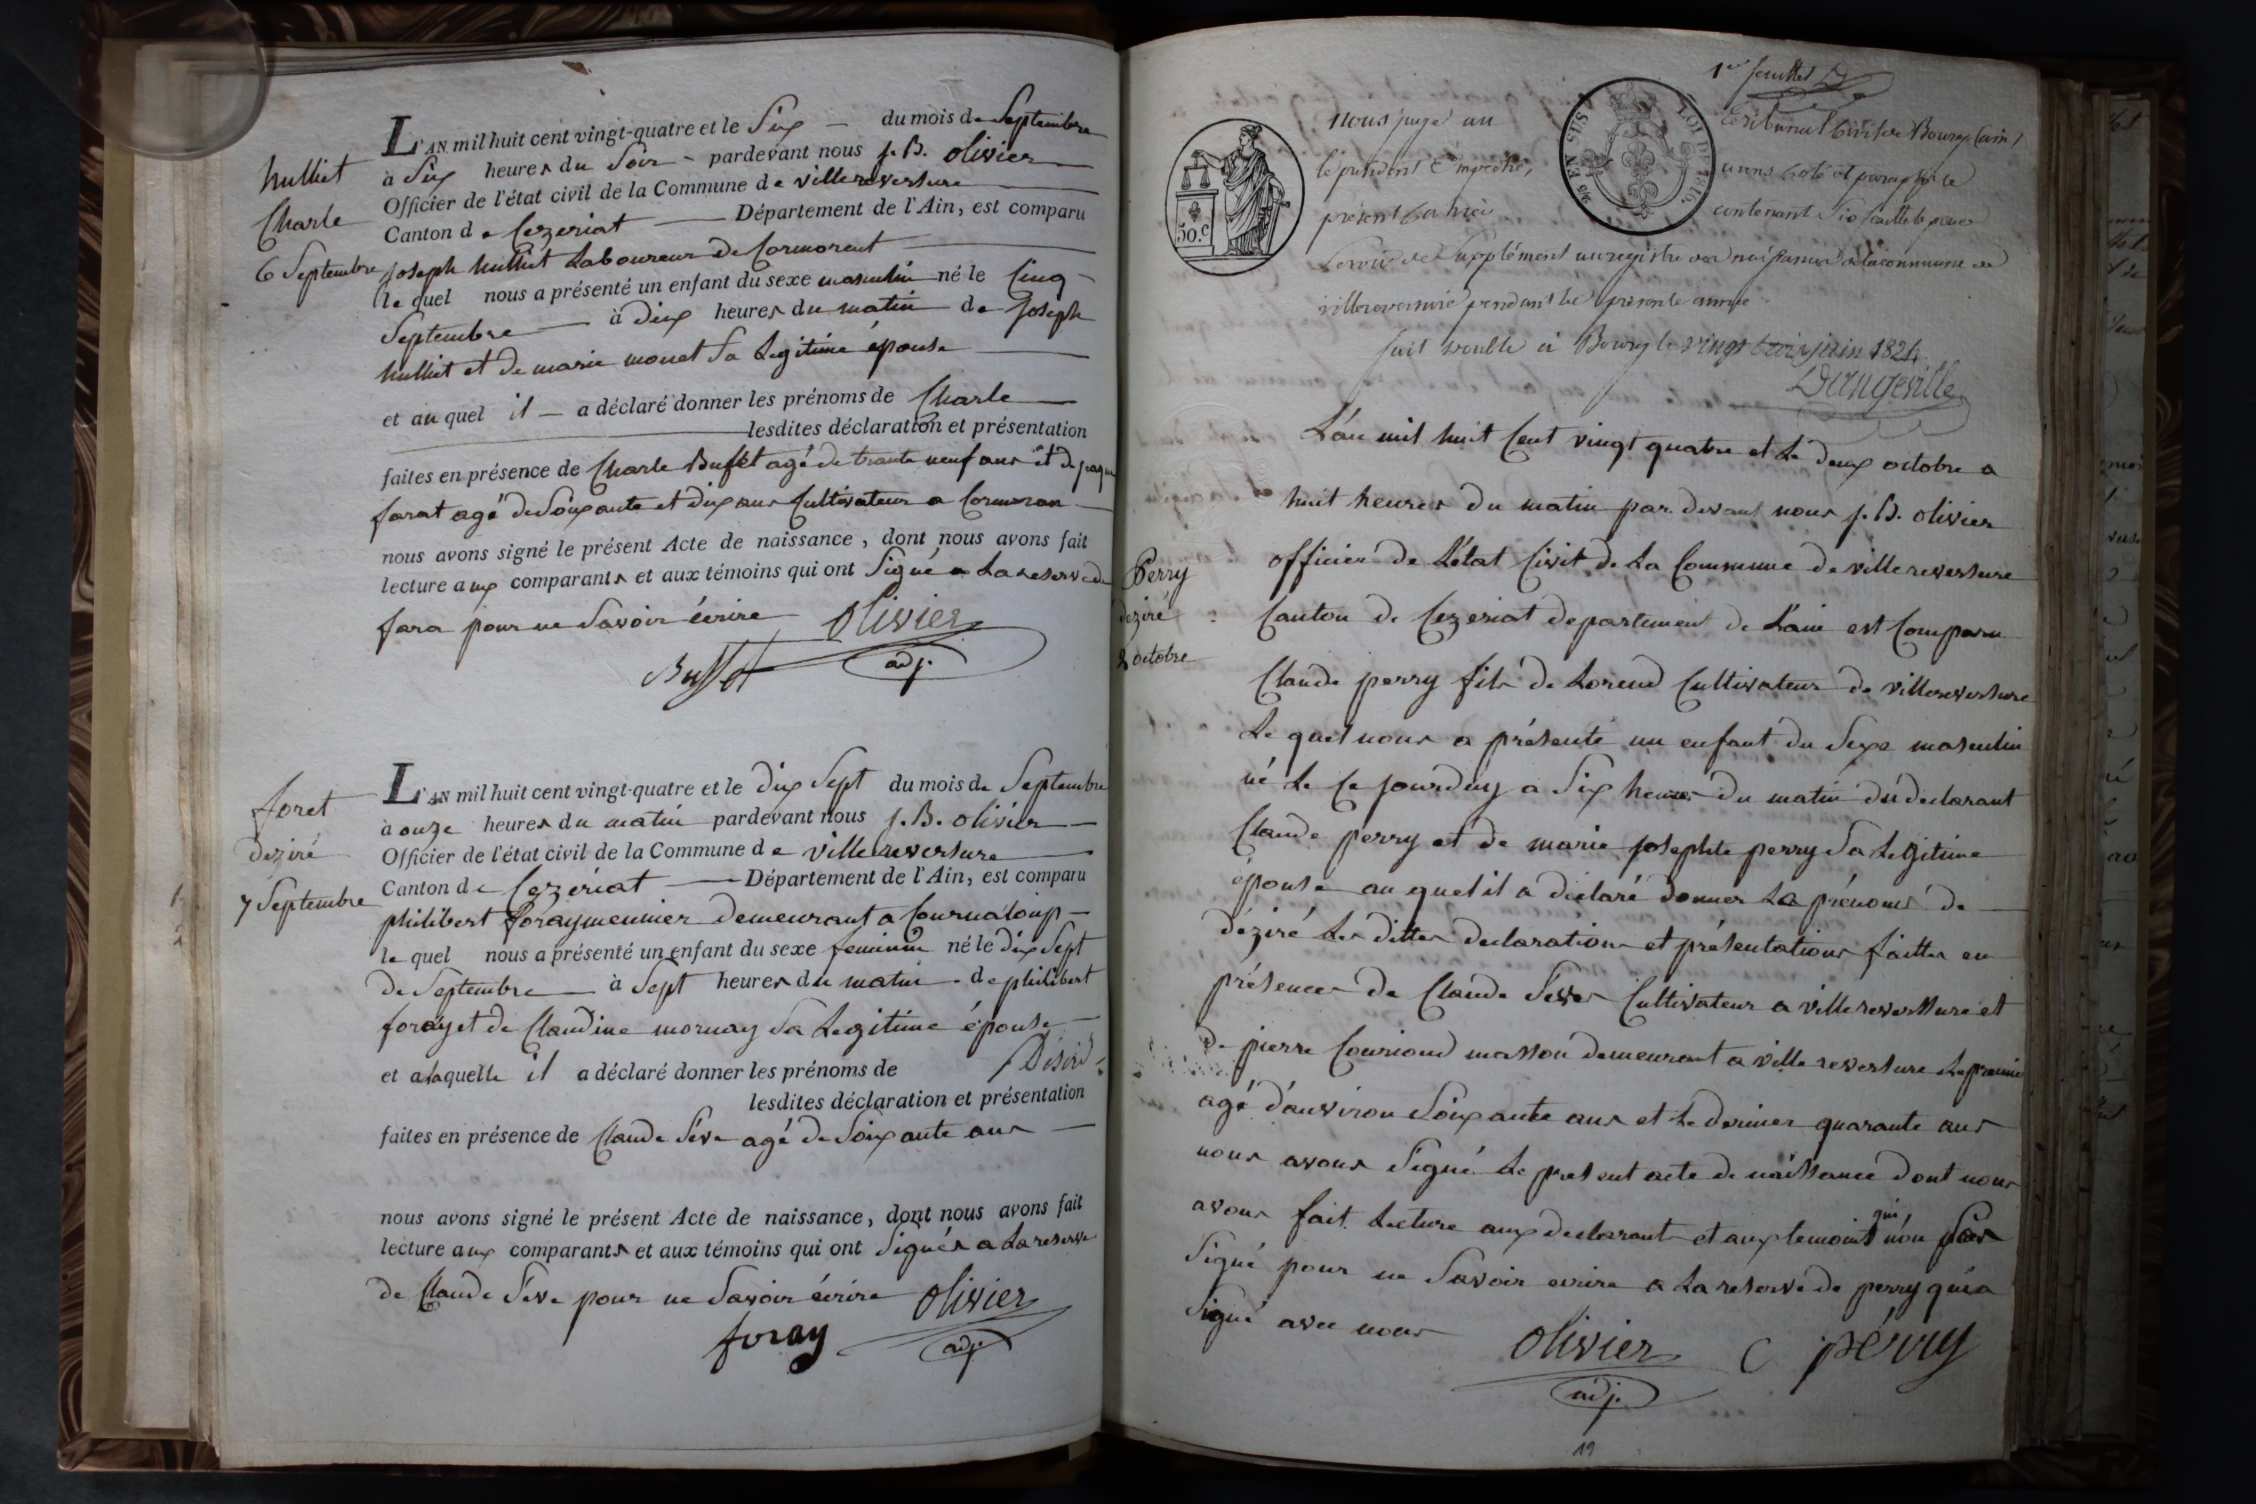 hulliet
Charle
6 Septembre
L'AN mil huit cent vingt-quatre et le Six du mois de Septembre
à Six heures du Soir pardevant nous j. B. olivier
Officier de l'état civil de la Commune de villereversure
Canton de Cezeriat Département de l'Ain, est comparu
joseph hulliet Laboureur de Cormorent
le quel nous a présenté un enfant du sexe masculin né le Cinq
Septembre à dix heures du matin de joseph
hulliet et de marie monet Sa Legitime épouse
et au quel il a déclaré donner les prénoms de Charle
lesdites déclaration et présentation
faites en présence de Charle Buffet agé de trante neuf ans et de
farat agé de Soixante et dix ans Cultivateur a Cormoran
nous avons signé le présent Acte de naissance, dont nous avons fait
lecture aux comparants et aux témoins qui ont Signé a La reserve de
fara pour ne Savoir écrire olivier
Buffet adj.
foret
deziré
7 Septembre
L'AN mil huit cent vingt-quatre et le dix Sept du mois de Septembre
à onze heures du matin pardevant nous j. B. olivier
Officier de l'état civil de la Commune de villereversure
Canton de Cezériat Département de l'Ain, est comparu
philibert foray meunier demeurant a Cournaloup
le quel nous a présenté un enfant du sexe feminin né le dix Sept
de Septembre à Sept heures du matin de philibert
foray et de Claudine mornay Sa Legitime épouse
et a laquelle il a déclaré donner les prénoms de Désiré
lesdites déclaration et présentation
faites en présence de Claude Séve agé de Soixante ans
nous avons signé le présent Acte de naissance, dont nous avons fait
lecture aux comparants et aux témoins qui ont Signés a La reserve
de Claude Séve pour ne Savoir écrire olivier
foray adj.
1er feuillet
50.c
EN SUS
LOI DE 1816
nous juge au tribunal Civil de Bourg (ain)
le président Empeché, avons coté et paraphé le
présent Cahier contenant Six feuillets pour
Servir de Supplément au registre des naissances de la commune de
villereversure pendant la présente année
fait double à Bourg le vingt trois juin 1824
Dangeville
L'an mil huit Cent vingt quatre et Le deux octobre a
huit heures du matin par devant nous j. B. olivier
Perry
deziré
2 octobre
officier de L'état Civil de La Commune de villereversure
Canton de Cezeriat departement de L'ain est Comparu
Claude perry fils de Lorend Cultivateur de villereversure
Le quel nous a présenté un enfant du Sexe masculin
né Le Ce jourduy a Six heures du matin du déclarant
Claude perry et de marie josephte perry Sa Legitime
épouse au quel il a déclaré donner La prénoms de
déziré Les dittes declarations et présentations faittes en
présences de Claude Séve Cultivateur a villereverssure et
de pierre Couriond masson demeurant a ville reversure Le premier
agé d'auviron Soixante ans et Le dernier quarante ans
nous avons Signé Le present acte de naissance dont nous
avons fait Lecture aux declarant et aux temoins qui n'on pas
Signé pour ne Savoir ecrire a La reserve de perry qui a
Signé avec nous olivier C pérry
adj.
19